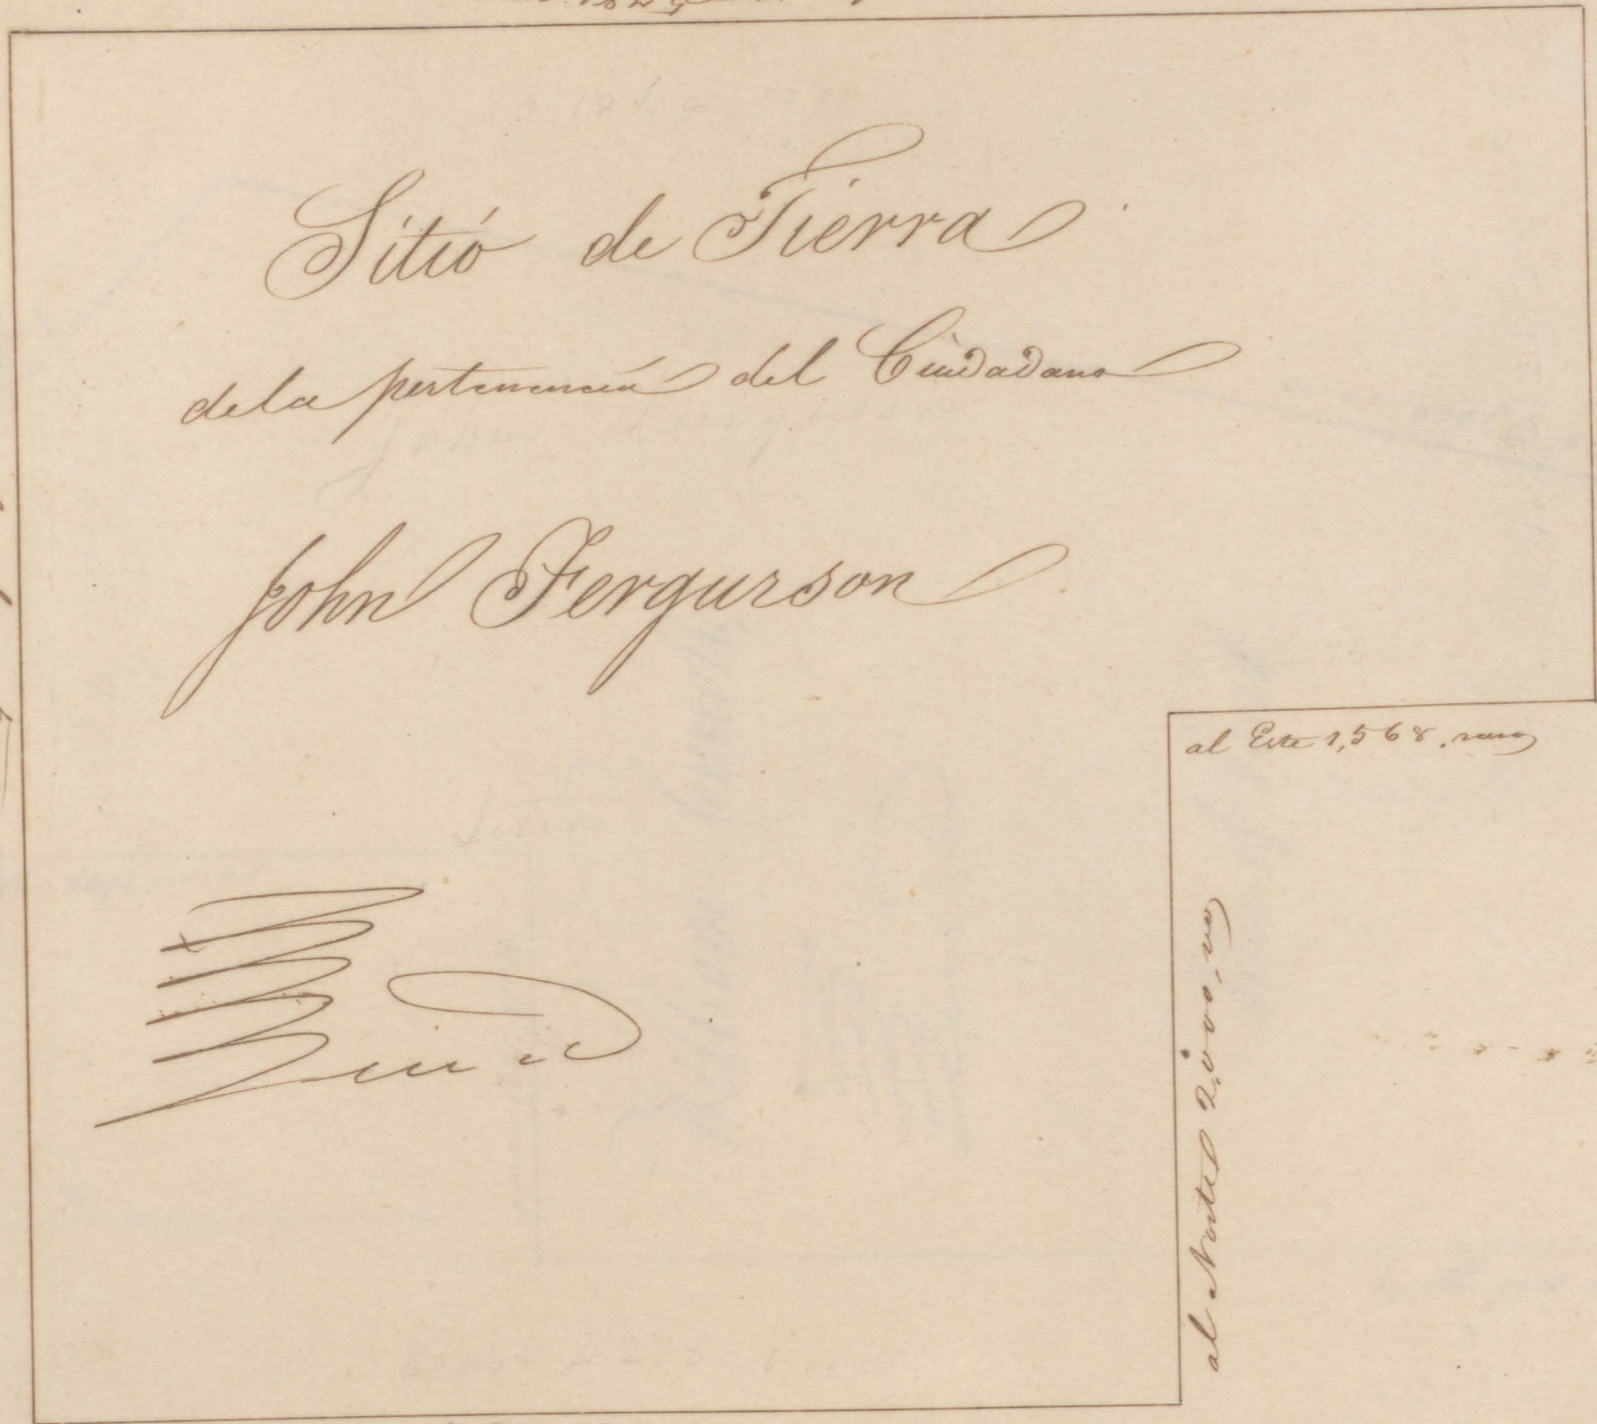 Sitió de Tierra
dela pertenencia del Ciudadano
John Fergurson
al Este 1,568. varas
al Norte 2,000, vs